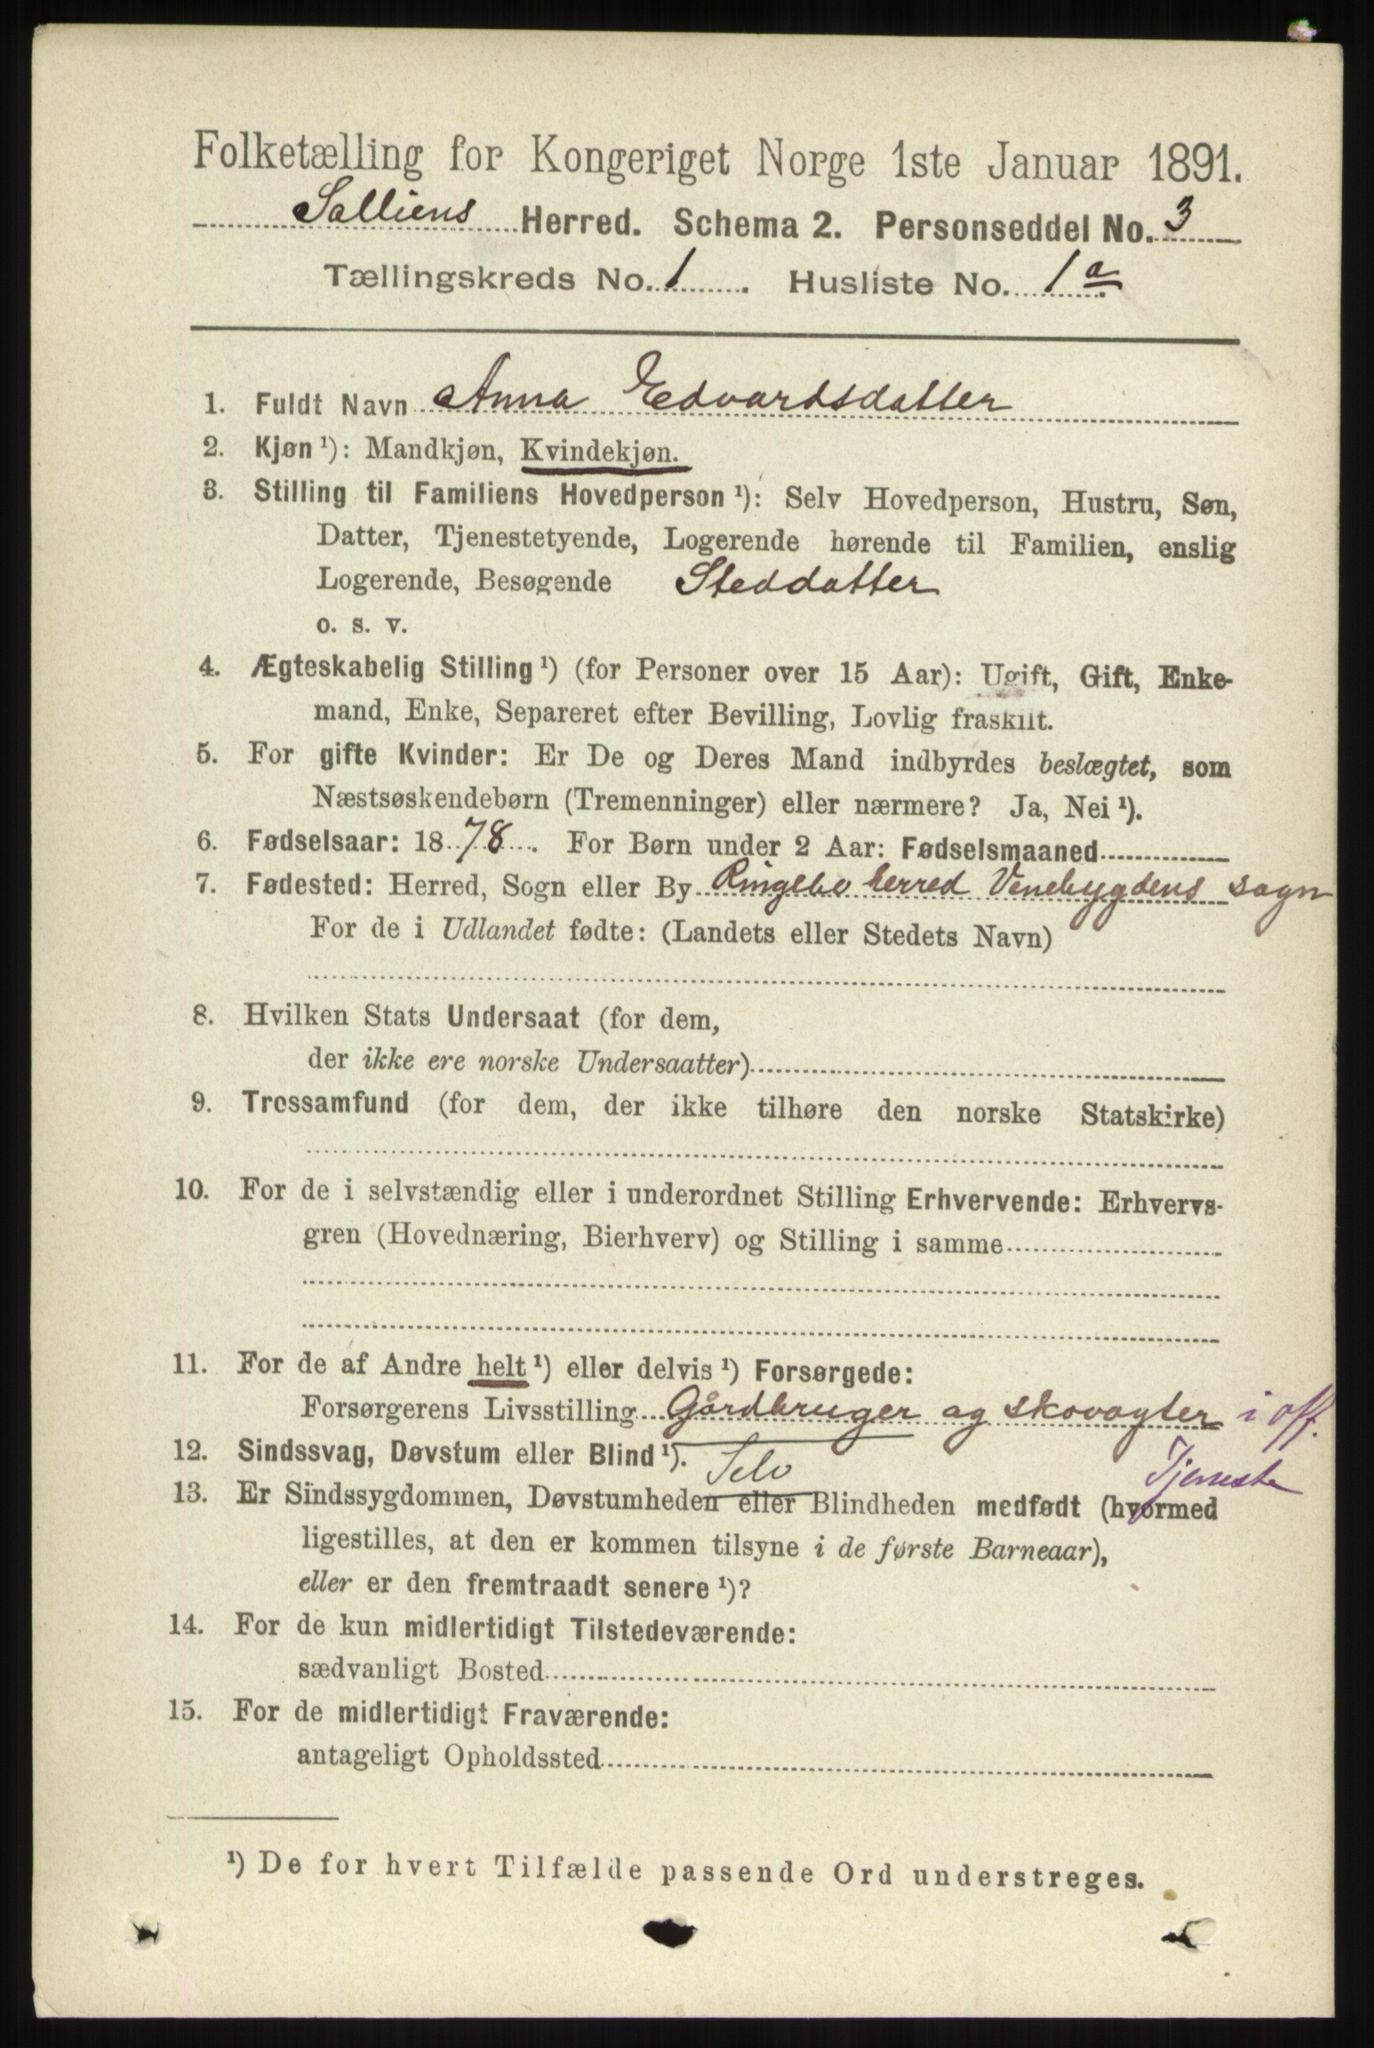 Folketælling for Kongeriget Norge 1ste Januar 1891.
Solliens Herred. Schema 2. Personseddel No. 3
Tællingskreds No. 1. Husliste No. 1a
1. Fuldt Navn Anna Edvardsdatter
2. Kjøn¹): Mandkjøn, Kvindekjøn.
3. Stilling til Familiens Hovedperson¹): Selv Hovedperson, Hustru, Søn,
Datter, Tjenestetyende, Logerende hørende til Familien, enslig
Logerende, Besøgende Steddatter
o. s. v.
4. Ægteskabelig Stilling¹) (for Personer over 15 Aar): Ugift, Gift, Enke-
mand, Enke, Separeret efter Bevilling, Lovlig fraskilt.
5. For gifte Kvinder: Er De og Deres Mand indbyrdes beslægtet, som
Næstsøskendebørn (Tremenninger) eller nærmere? Ja, Nei¹).
6. Fødselsaar: 1878. For Børn under 2 Aar: Fødselsmaaned
7. Fødested: Herred, Sogn eller By Ringebo herred Venebygdens sogn
For de i Udlandet fødte: (Landets eller Stedets Navn)
8. Hvilken Stats Undersaat (for dem,
der ikke ere norske Undersaatter)
9. Trossamfund (for dem, der ikke tilhøre den norske Statskirke)
10. For de i selvstændig eller i underordnet Stilling Erhvervende: Erhvervs-
gren (Hovednæring, Bierhverv) og Stilling i samme
11. For de af Andre helt¹) eller delvis¹) Forsørgede:
Forsørgerens Livsstilling Gårdbruger og skovogter i off.
Tjeneste
12. Sindssvag, Døvstum eller Blind¹). Selv
13. Er Sindssygdommen, Døvstumheden eller Blindheden medfødt (hvormed
ligestilles, at den er kommen tilsyne i de første Barneaar),
eller er den fremtraadt senere¹)?
14. For de kun midlertidigt Tilstedeværende:
sædvanligt Bosted
15. For de midlertidigt Fraværende:
antageligt Opholdssted
¹) De for hvert Tilfælde passende Ord understreges.